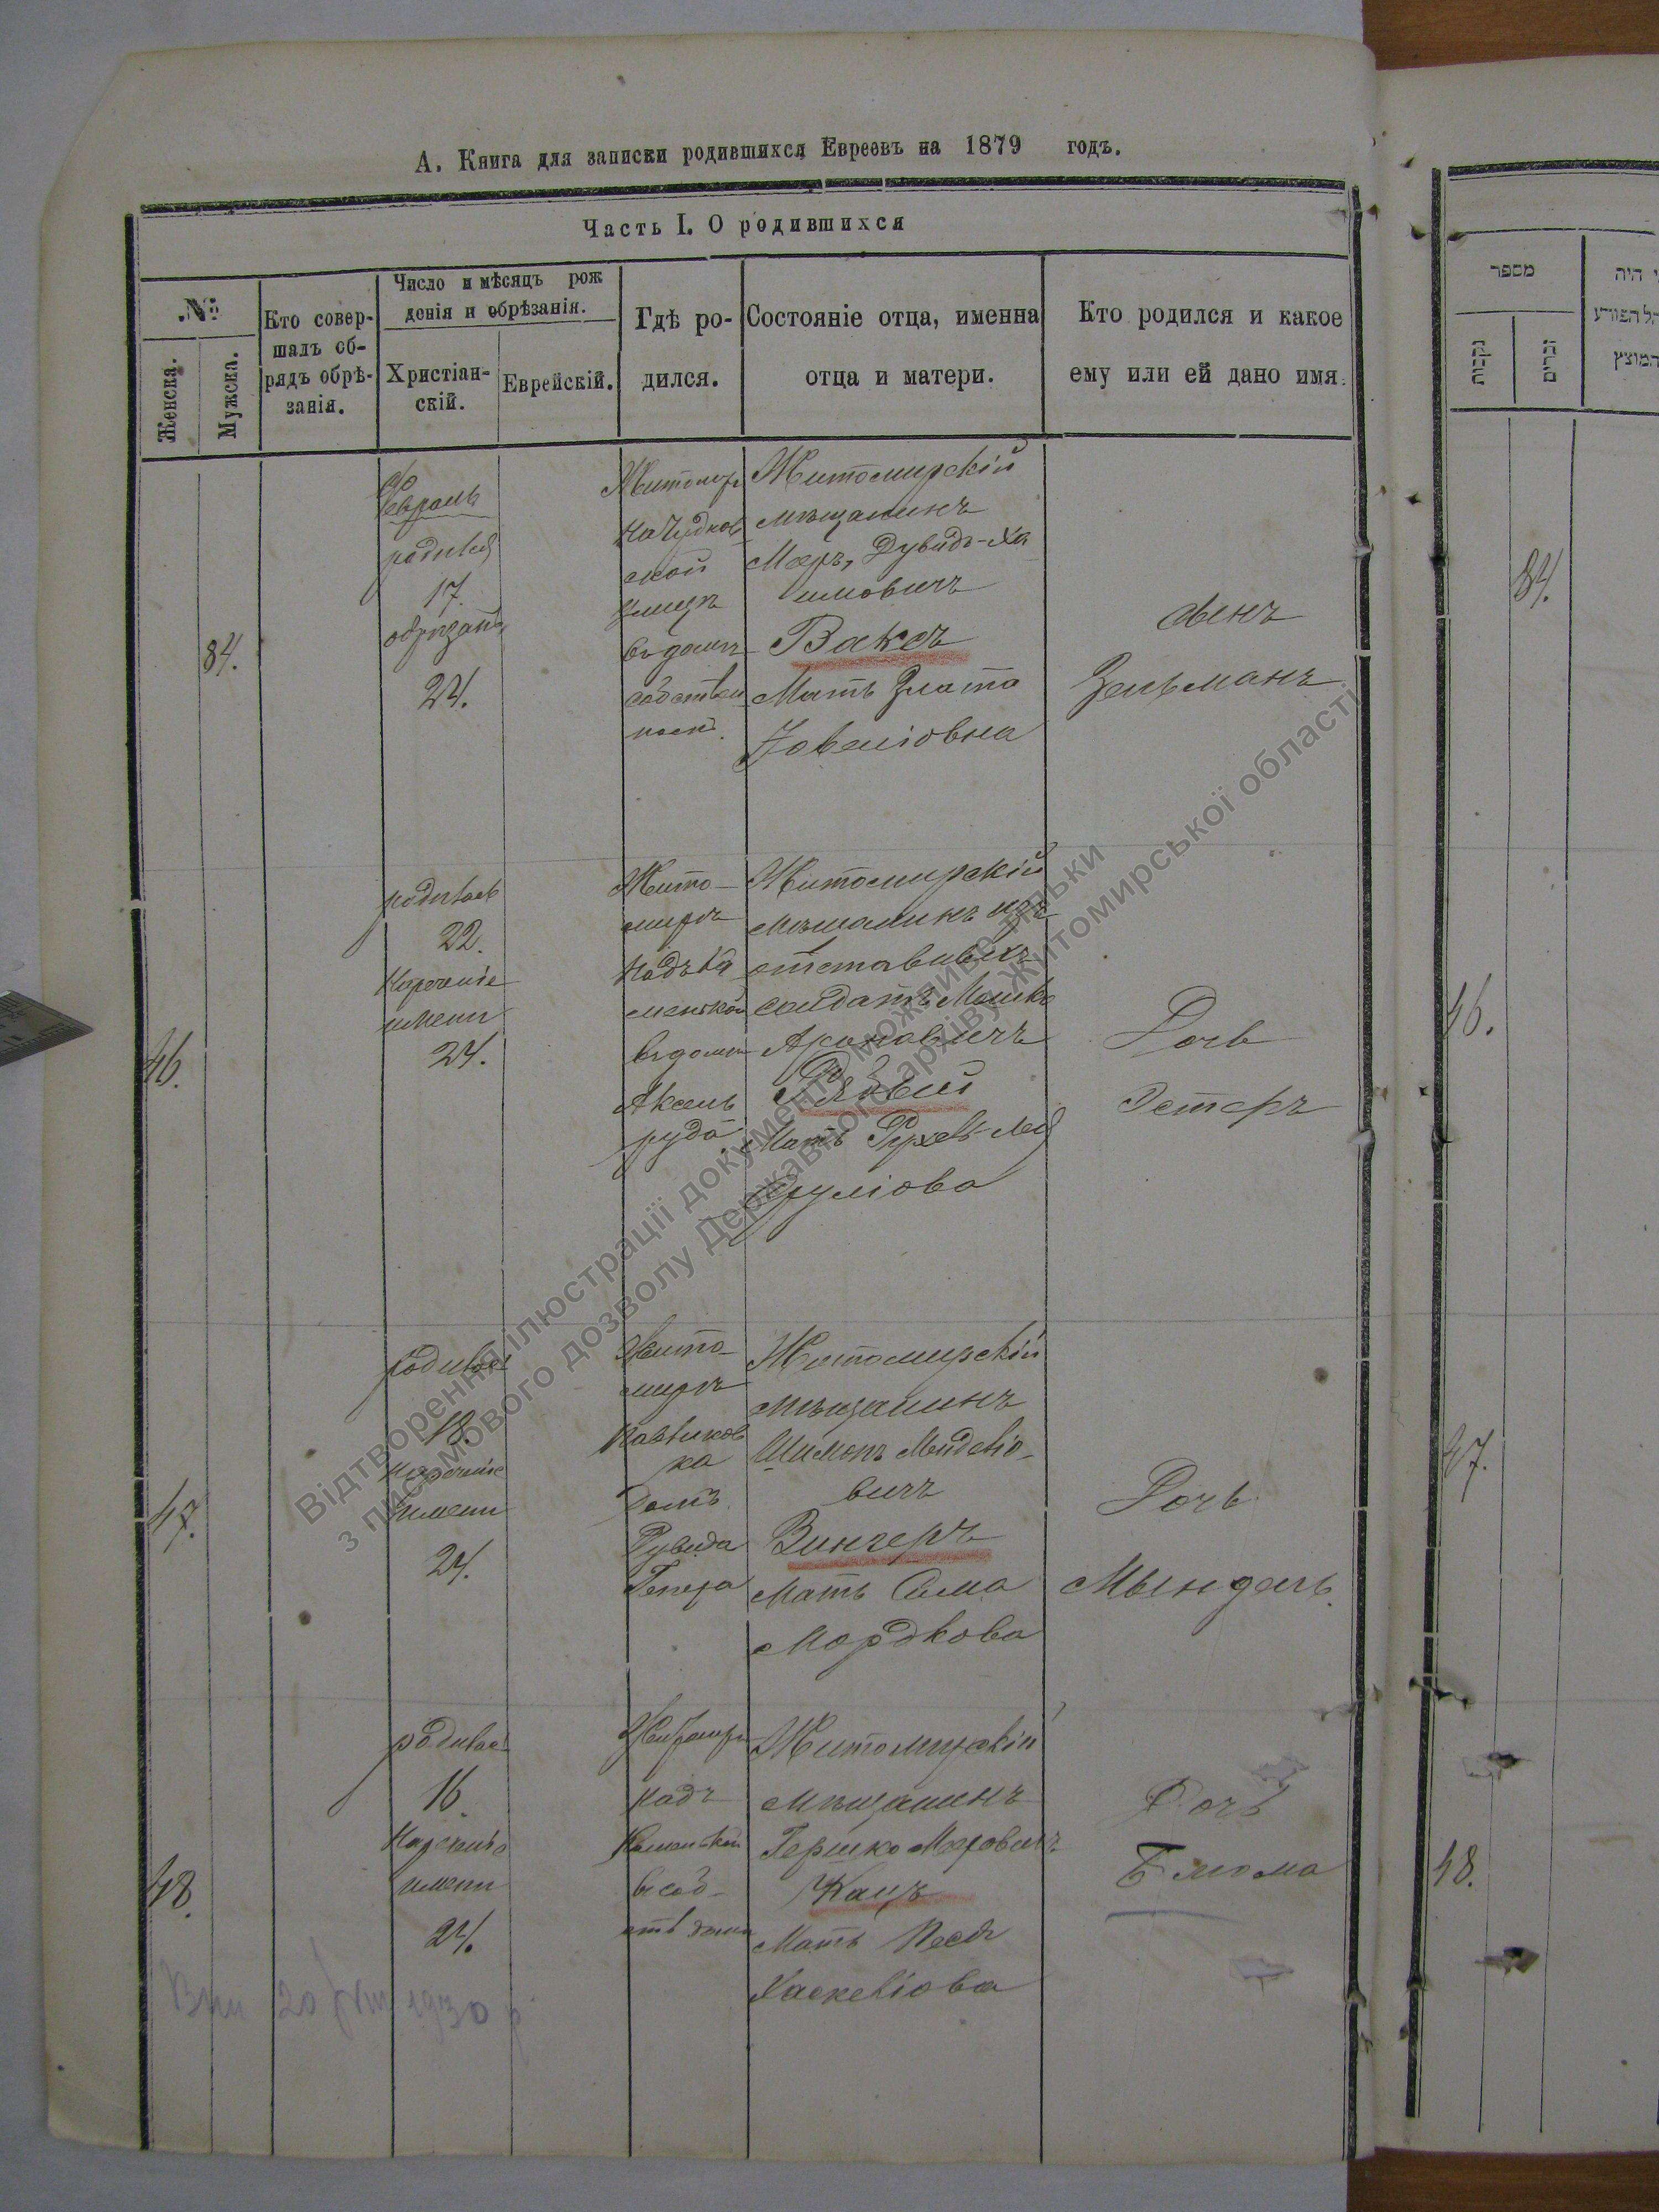 А. Книга для записки родившихся Евреевъ на 1879 годъ.
Часть I. О родившихся
№
Женска.
Мужска.
Кто совер-
шалъ об-
рядъ обрѣ-
занія.
Число и мѣсяцъ рож
денія и обрѣзанія.
Христіан-
скій.
Еврейскій.
Гдѣ ро-
дился.
Состояніе отца, именна
отца и матери.
Кто родился и какое
ему или ей дано имя.
84.
Февраль
родился
17.
обрѣзанъ
24.
Житомиръ
на Чудновс
кой
улицѣ
въ домѣ
собствен
номъ.
Житомирскій
мѣщанинъ
Меръ, Дувидъ-Ха
имовичъ
Ваксъ
Мать Злата
Іовеліовна
сынъ
Зельманъ
46.
родилась
22.
Нареченіе
имени
24.
Жито-
миръ
надъ Ка
менкой
въ домѣ
Аксель
руда
Житомирскій
мѣщанинъ изъ
отставныхъ
солдатъ Мошко
Ароновичъ
Рябый
Мать Рухель-Лея
Сруліова
Дочь
Эстеръ
47.
родилась
18.
Нареченіе
имени
24.
Жито-
миръ
ка
домъ
Дувида
Житомирскій
мѣщанинъ
Шимонъ Мендelіо-
вичъ
Вингеръ
Мать Сима
Мордкова
Дочь
Мындель.
48.
родилась
16.
Нареченіе
имени
24.
Житомиръ
надъ
Каменкой
въ соб-
ств домѣ
Житомирскій
мѣщанинъ
Гершко Меровичъ
Кацъ
Мать Песя
Хаскеліова
Дочь
Блюма
20
1930 р
מספר
נקבות
זכרים
י היה
המוצץ
84.
46.
47.
48.
Відтворення ілюстрації документу можливе тільки
з письмового дозволу Державного архіву Житомирської області